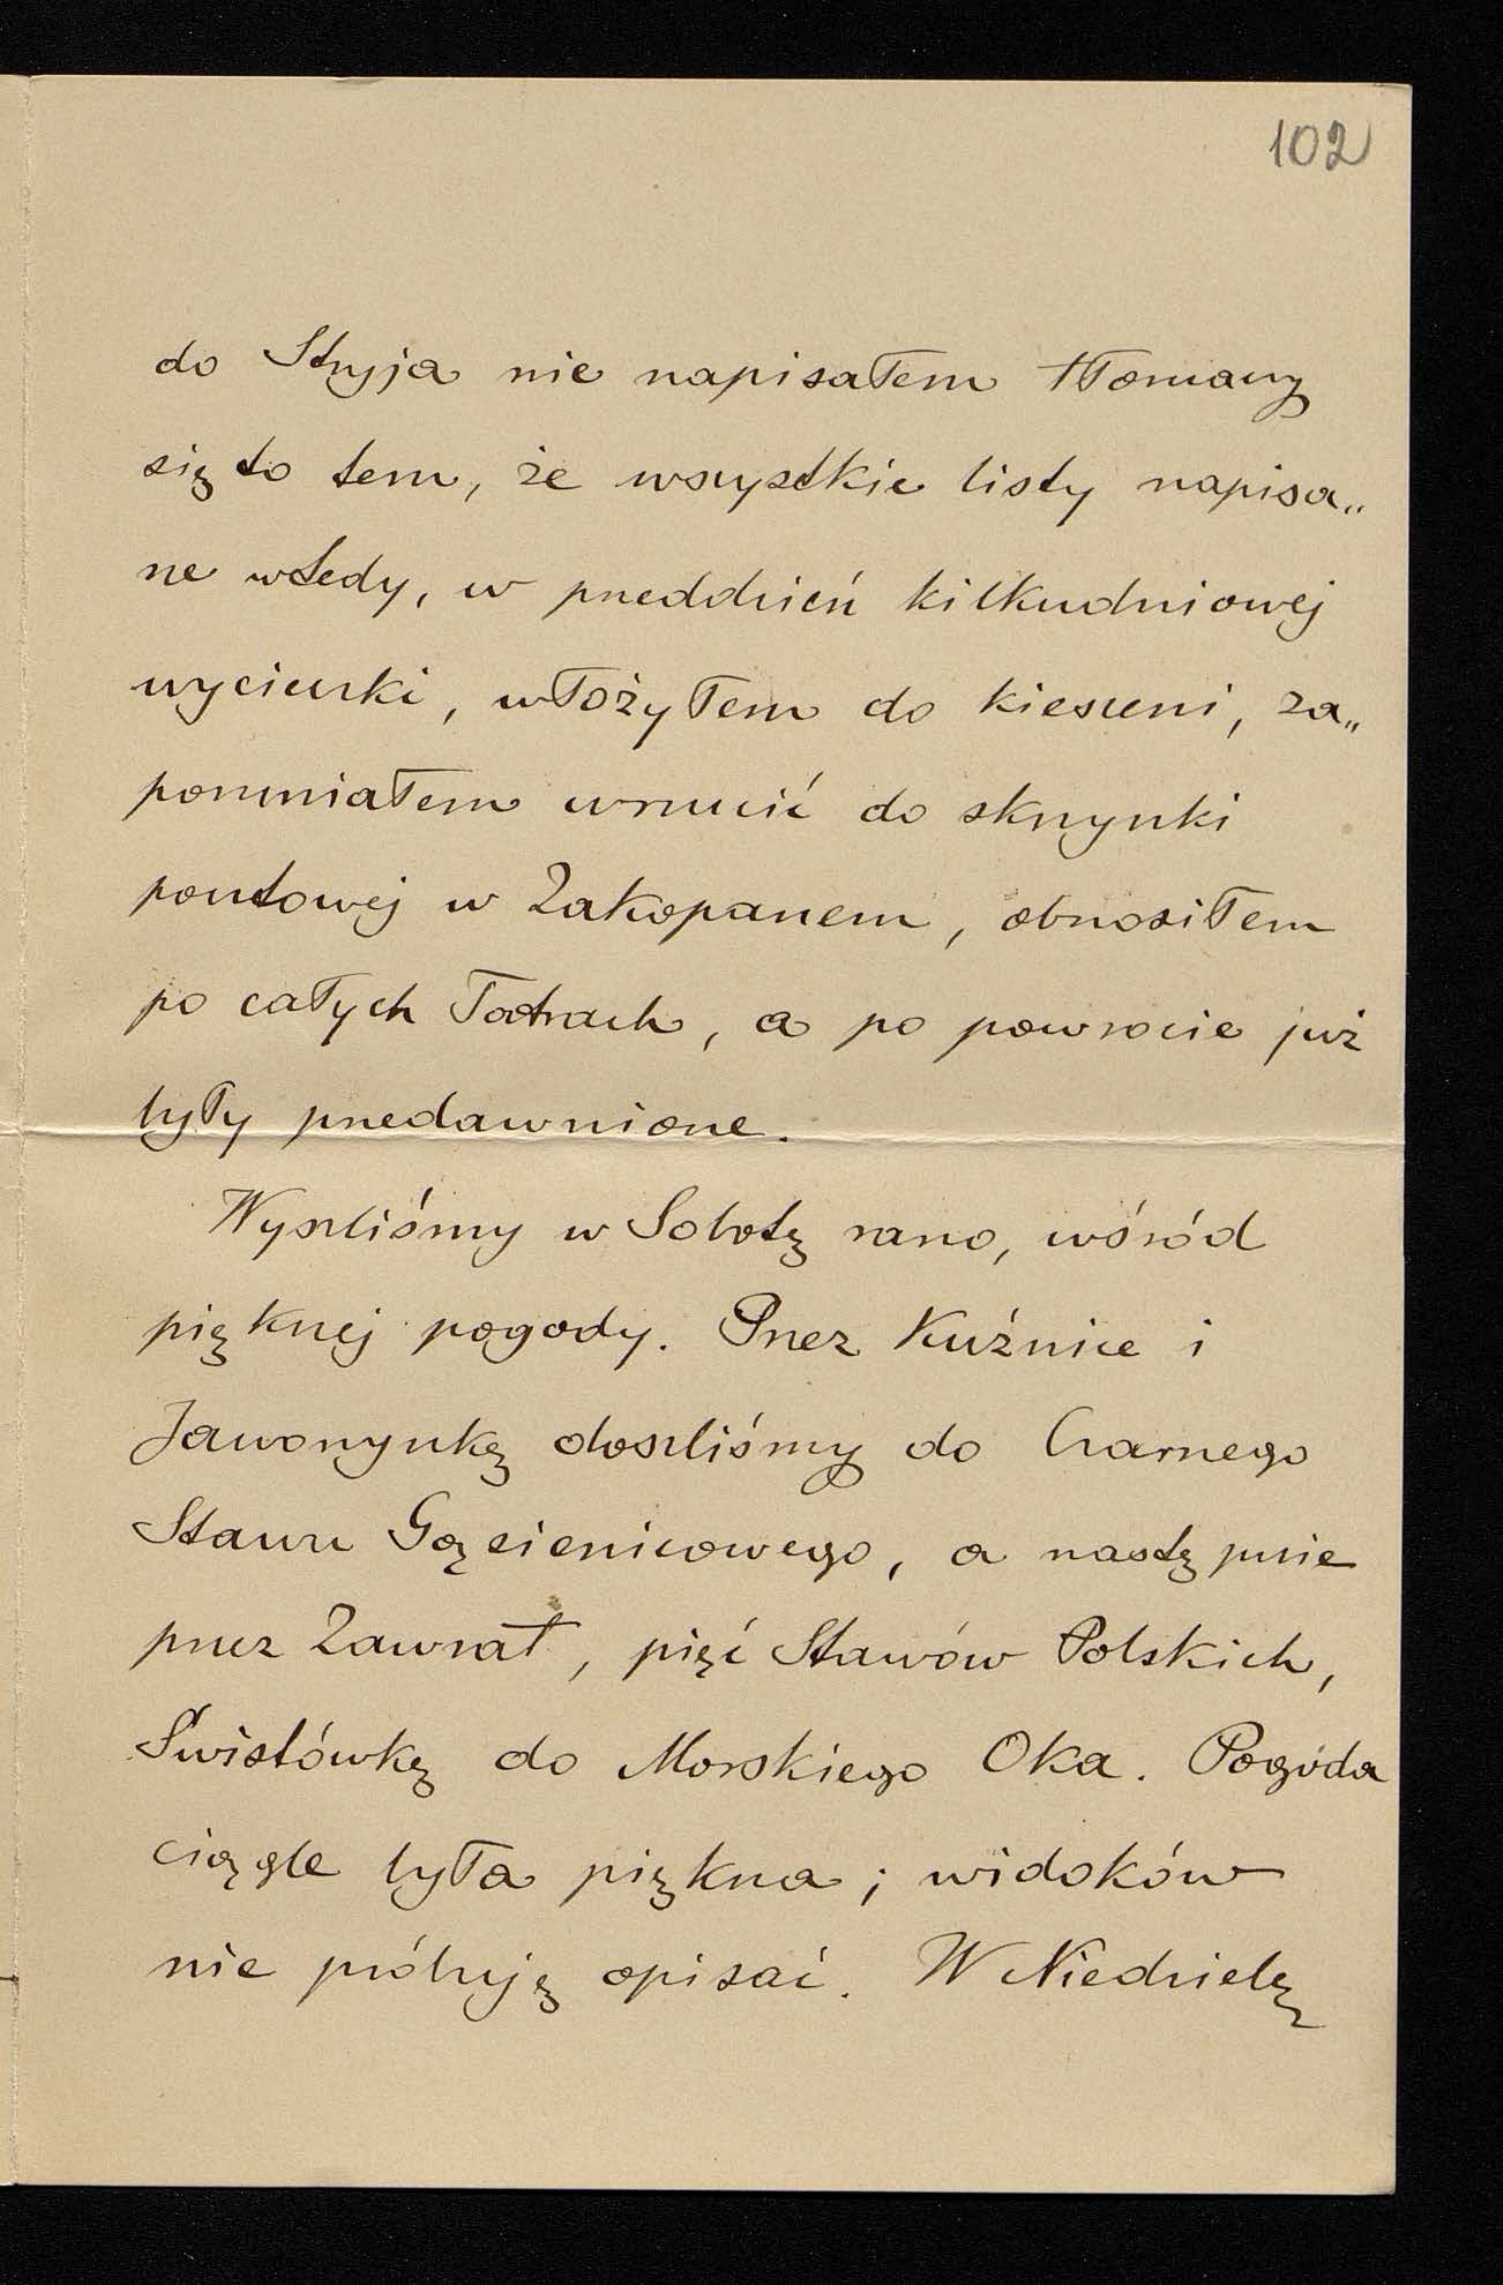 102
do Stryja nie napisałem tłomaczy
się to tem, że wszystkie listy napisa„
ne wtedy, w przeddzień kilkudniowej
wycieczki, włożyłem do kieszeni, za„
pomniałem wrzucić do skrzynki
pocztowej w Zakopanem, obnosiłem
po całych Tatrach, a po powrocie już
były przedawnione.
Wyszliśmy w Sobotę rano, wśród
pięknej pogody. Przez Kuźnice i
Jaworzynkę doszliśmy do Czarnego
Stawu Gąsienicowego, a następnie
przez Zawrat, pięć Stawów Polskich,
Świstówkę do Morskiego Oka. Pogoda
ciągle była piękna; widoków
nie próbuję opisać. W Niedzielę